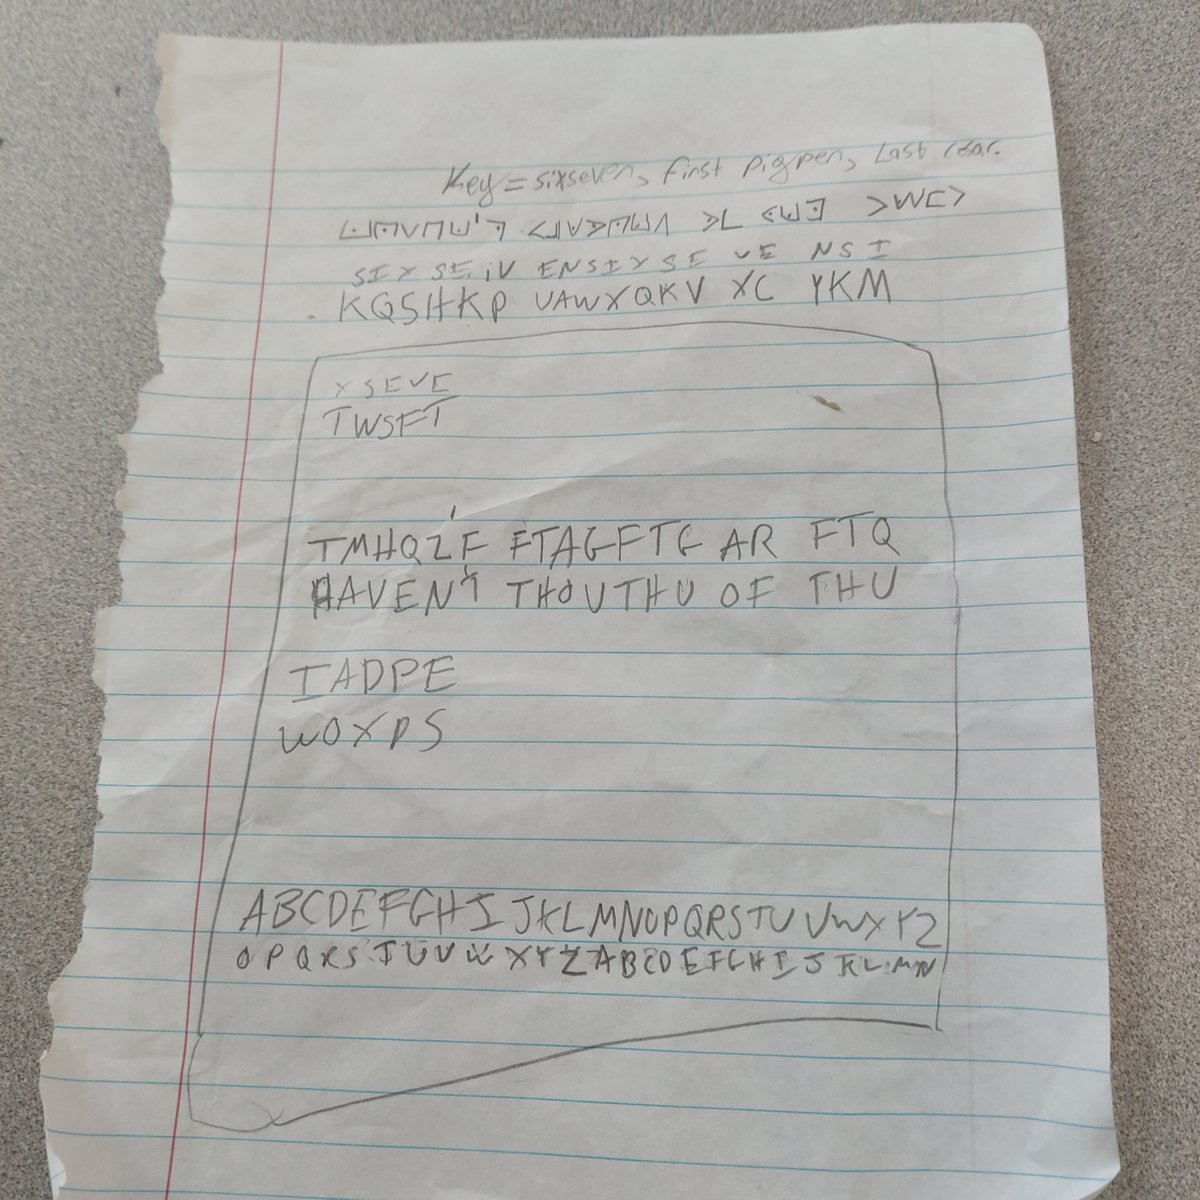 Key = sixseven, first pigpen, Last cesar.
SIX SE iV ENSIXSE VE NSI
KQSHKP UAWXQKV XC YKM
XSEVE
TWSFT
TMHQZ'F FTAGFTG AR FTQ
HAVEN'T THOUTHU OF THU
IADPE
WOXDS
ABCDEFGHIJKLMNOPQRSTUVWXYZ
OPQRSTUVWXYZABCDEFGHIJKLMN